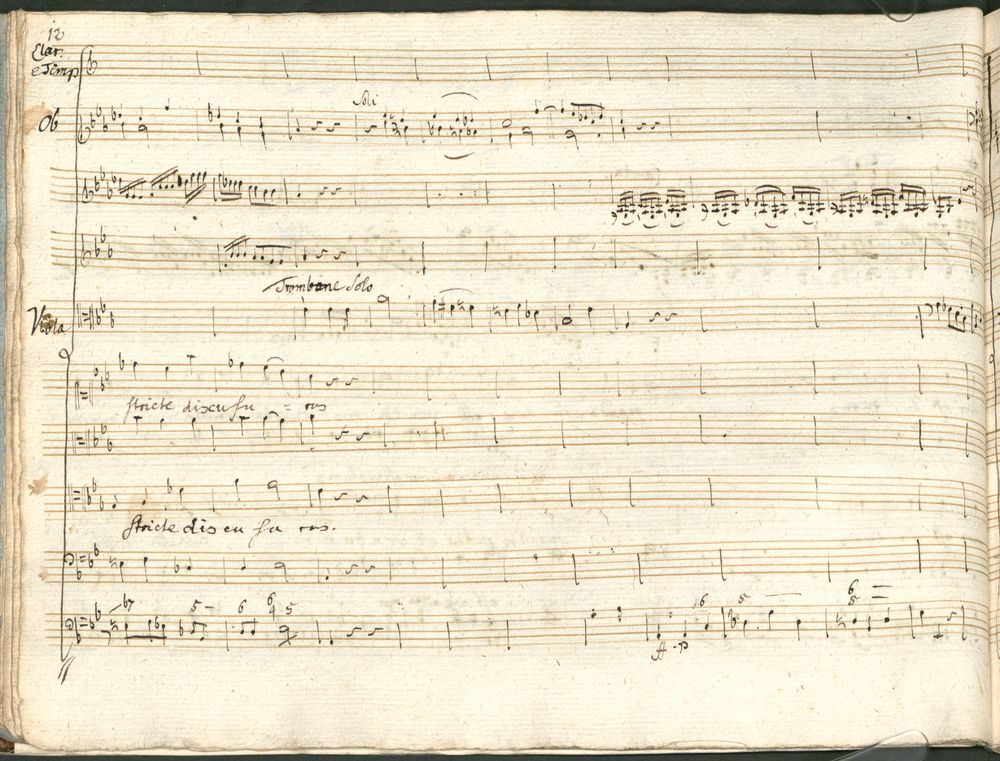 12
Clar.
e Timp
Soli
Ob
Trombone Solo
Viola
stricte discussu = rus
Stricte discu su rus.
b7 5 - 6 6 5
4
6 5
6
5
p